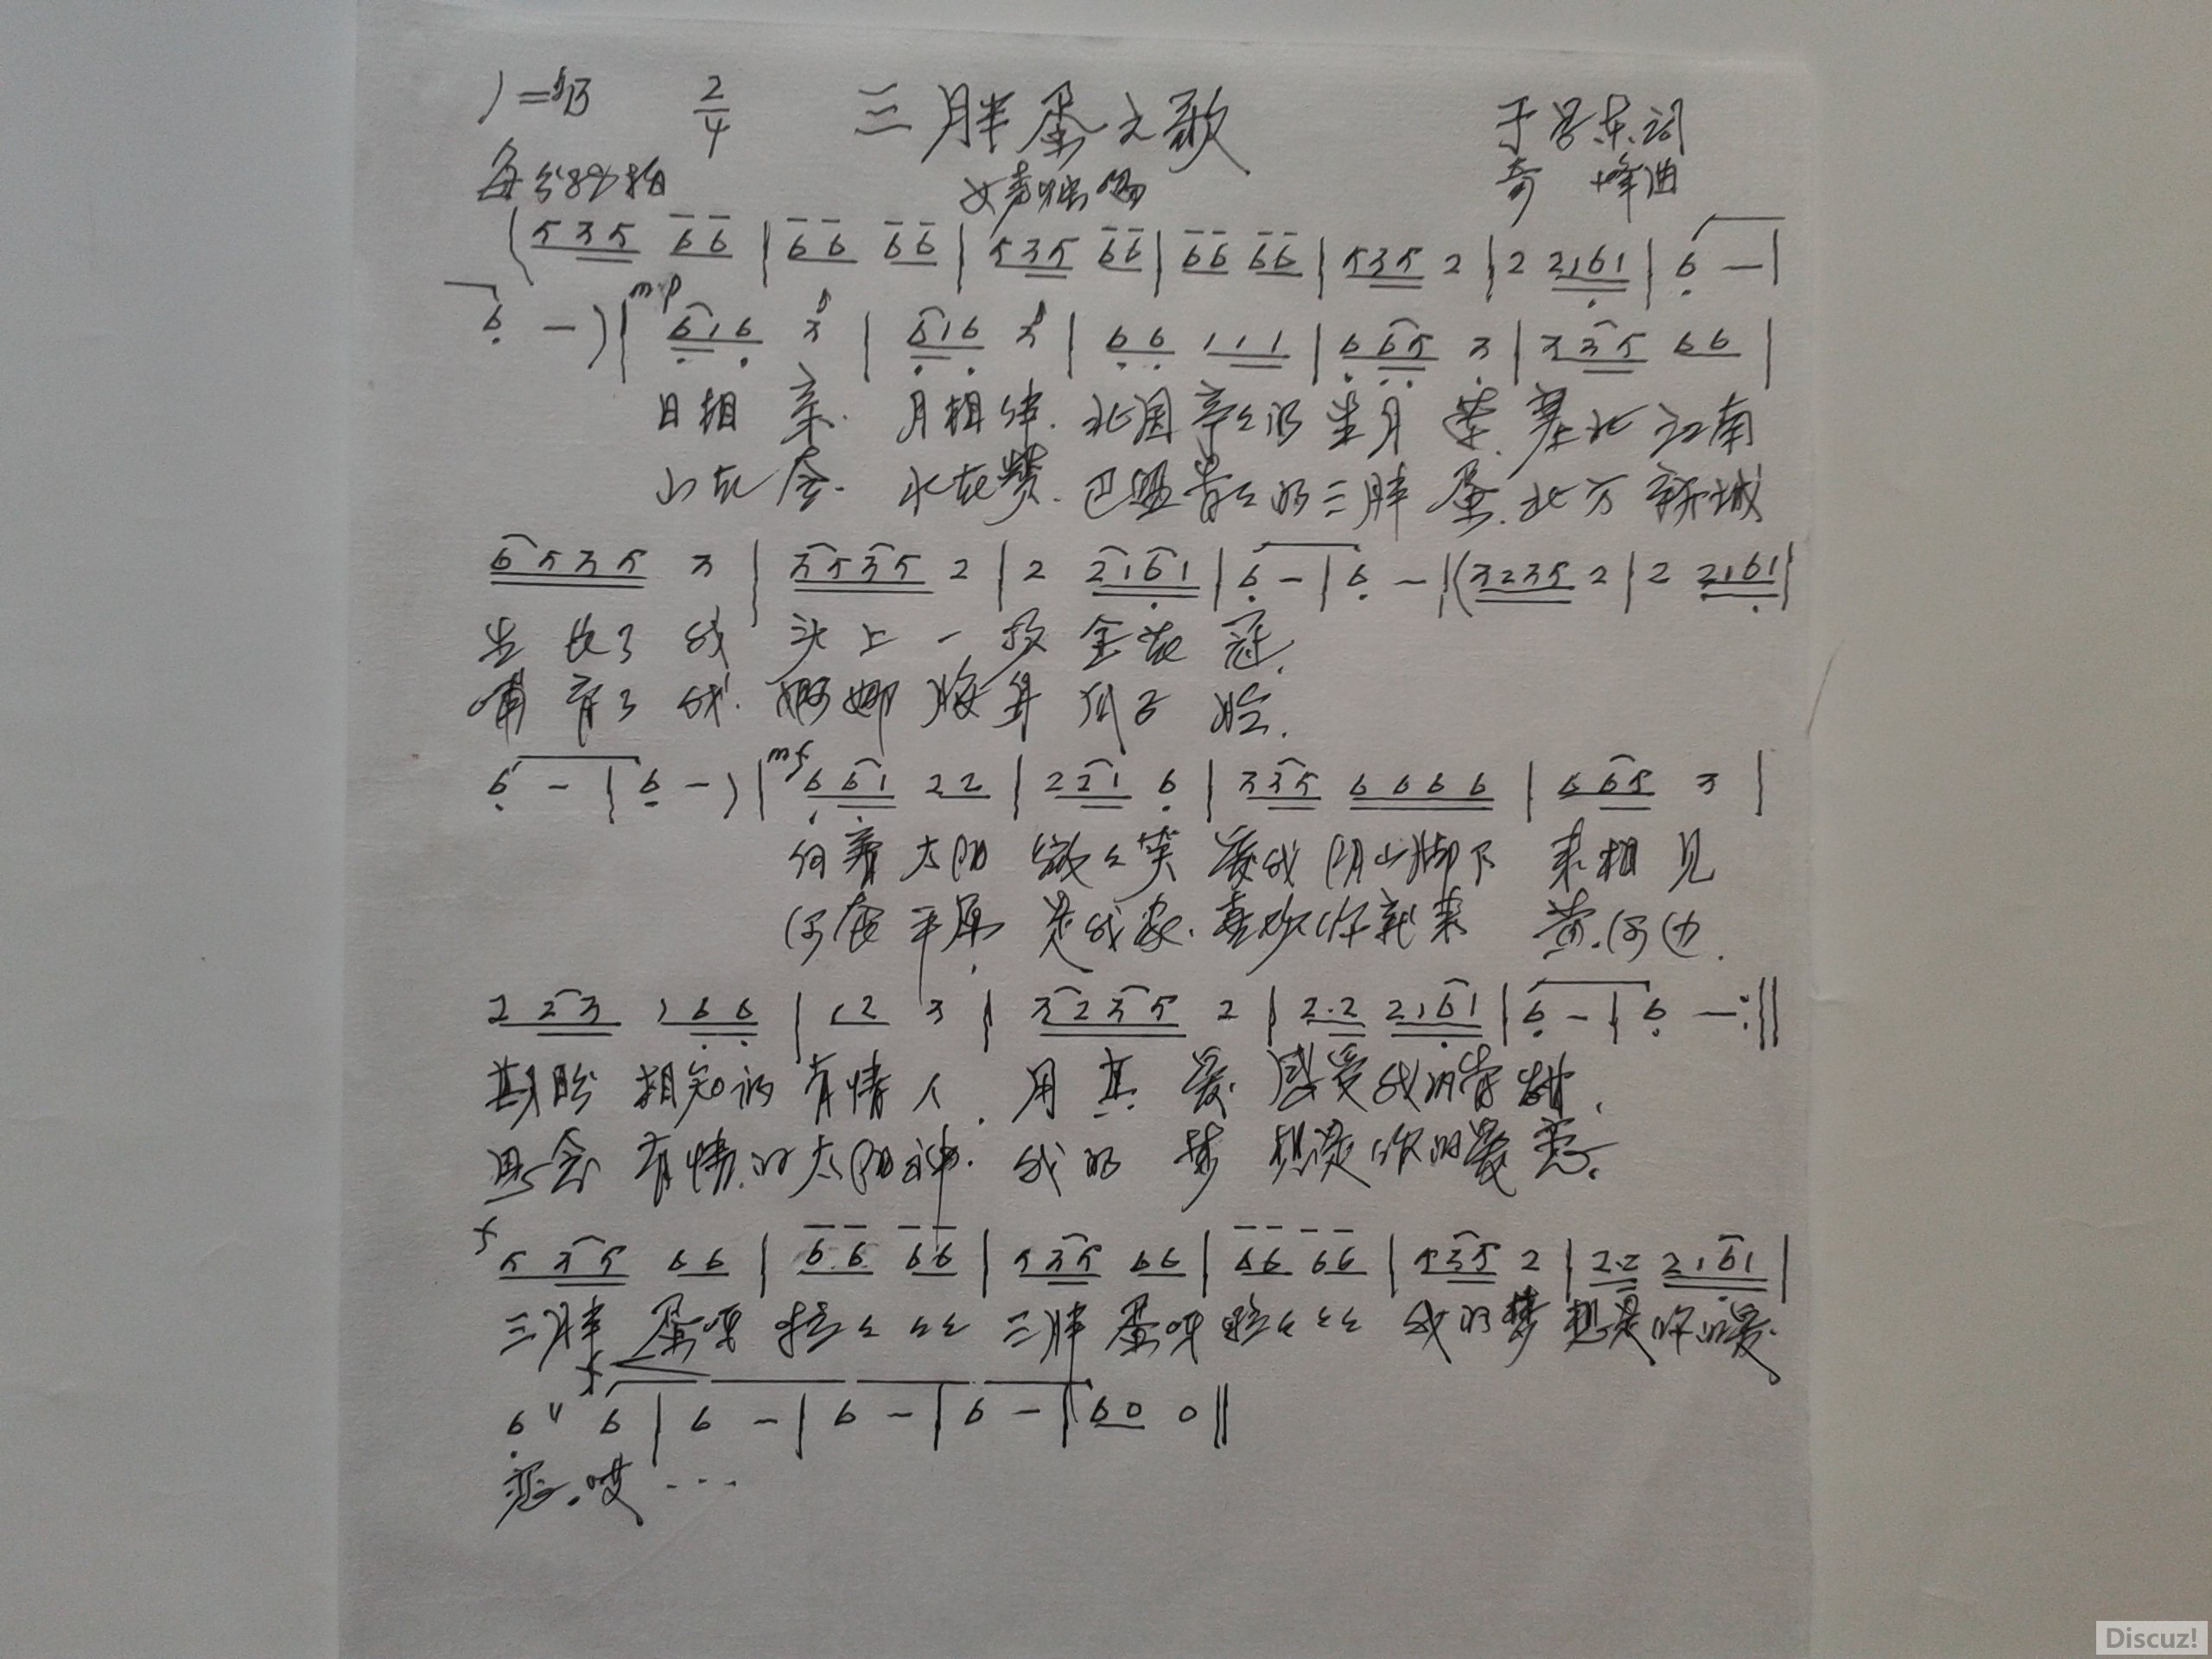 1=♭B 2/4 三胖蛋之歌 于 东词
每分 拍 女声独唱 奇 峰曲
(5 3 5 6 6 | 6 6 6 6 | 5 3 5 6 6 | 6 6 6 6 | 5 3 5 2 | 2 2 1 6 1 | 6 — |
6 —) | mp 6 1 6 3 | 6 1 6 3 | 6 6 1 1 1 | 6 6 5 3 | 3 3 5 6 6 |
日相亲. 月相伴. 北国 的 月 . 塞北江南
山在 . 水在赞. 巴盟 的三胖蛋. 北方新城
6 5 3 5 3 | 3 5 3 5 2 | 2 2 1 6 1 | 6 — | 6 — | (3 2 3 5 2 | 2 2 1 6 1 |
生长了我 头上一 金 冠.
哺育了我. 婀娜腰身瓜子脸.
6 — | 6 —) | mf 6 6 1 2 2 | 2 2 1 6 | 3 3 5 6 6 6 6 | 6 6 5 3 |
向着太阳 微々笑 爱我阴山脚下 来相见
河套平原 是我家. 喜欢你就来 黄河边.
2 2 3 1 6 6 | 1 2 3 | 3 2 3 5 2 | 2·2 2 1 6 1 | 6 — | 6 — :||
期盼相知的有情人. 用真爱 感受我的香甜.
思念有情的太阳神. 我的梦想是你的爱恋.
f 5 3 5 6 6 | 6 6 6 6 | 5 3 5 6 6 | 6 6 6 6 | 5 3 5 2 | 2·2 2 1 6 1 |
三胖蛋呀 啦々々々 三胖蛋呀啦々々々 我的梦想是你的爱
f
6 6 | 6 — | 6 — | 6 — | 6 0 0 ||
恋. 哎 ...
Discuz!